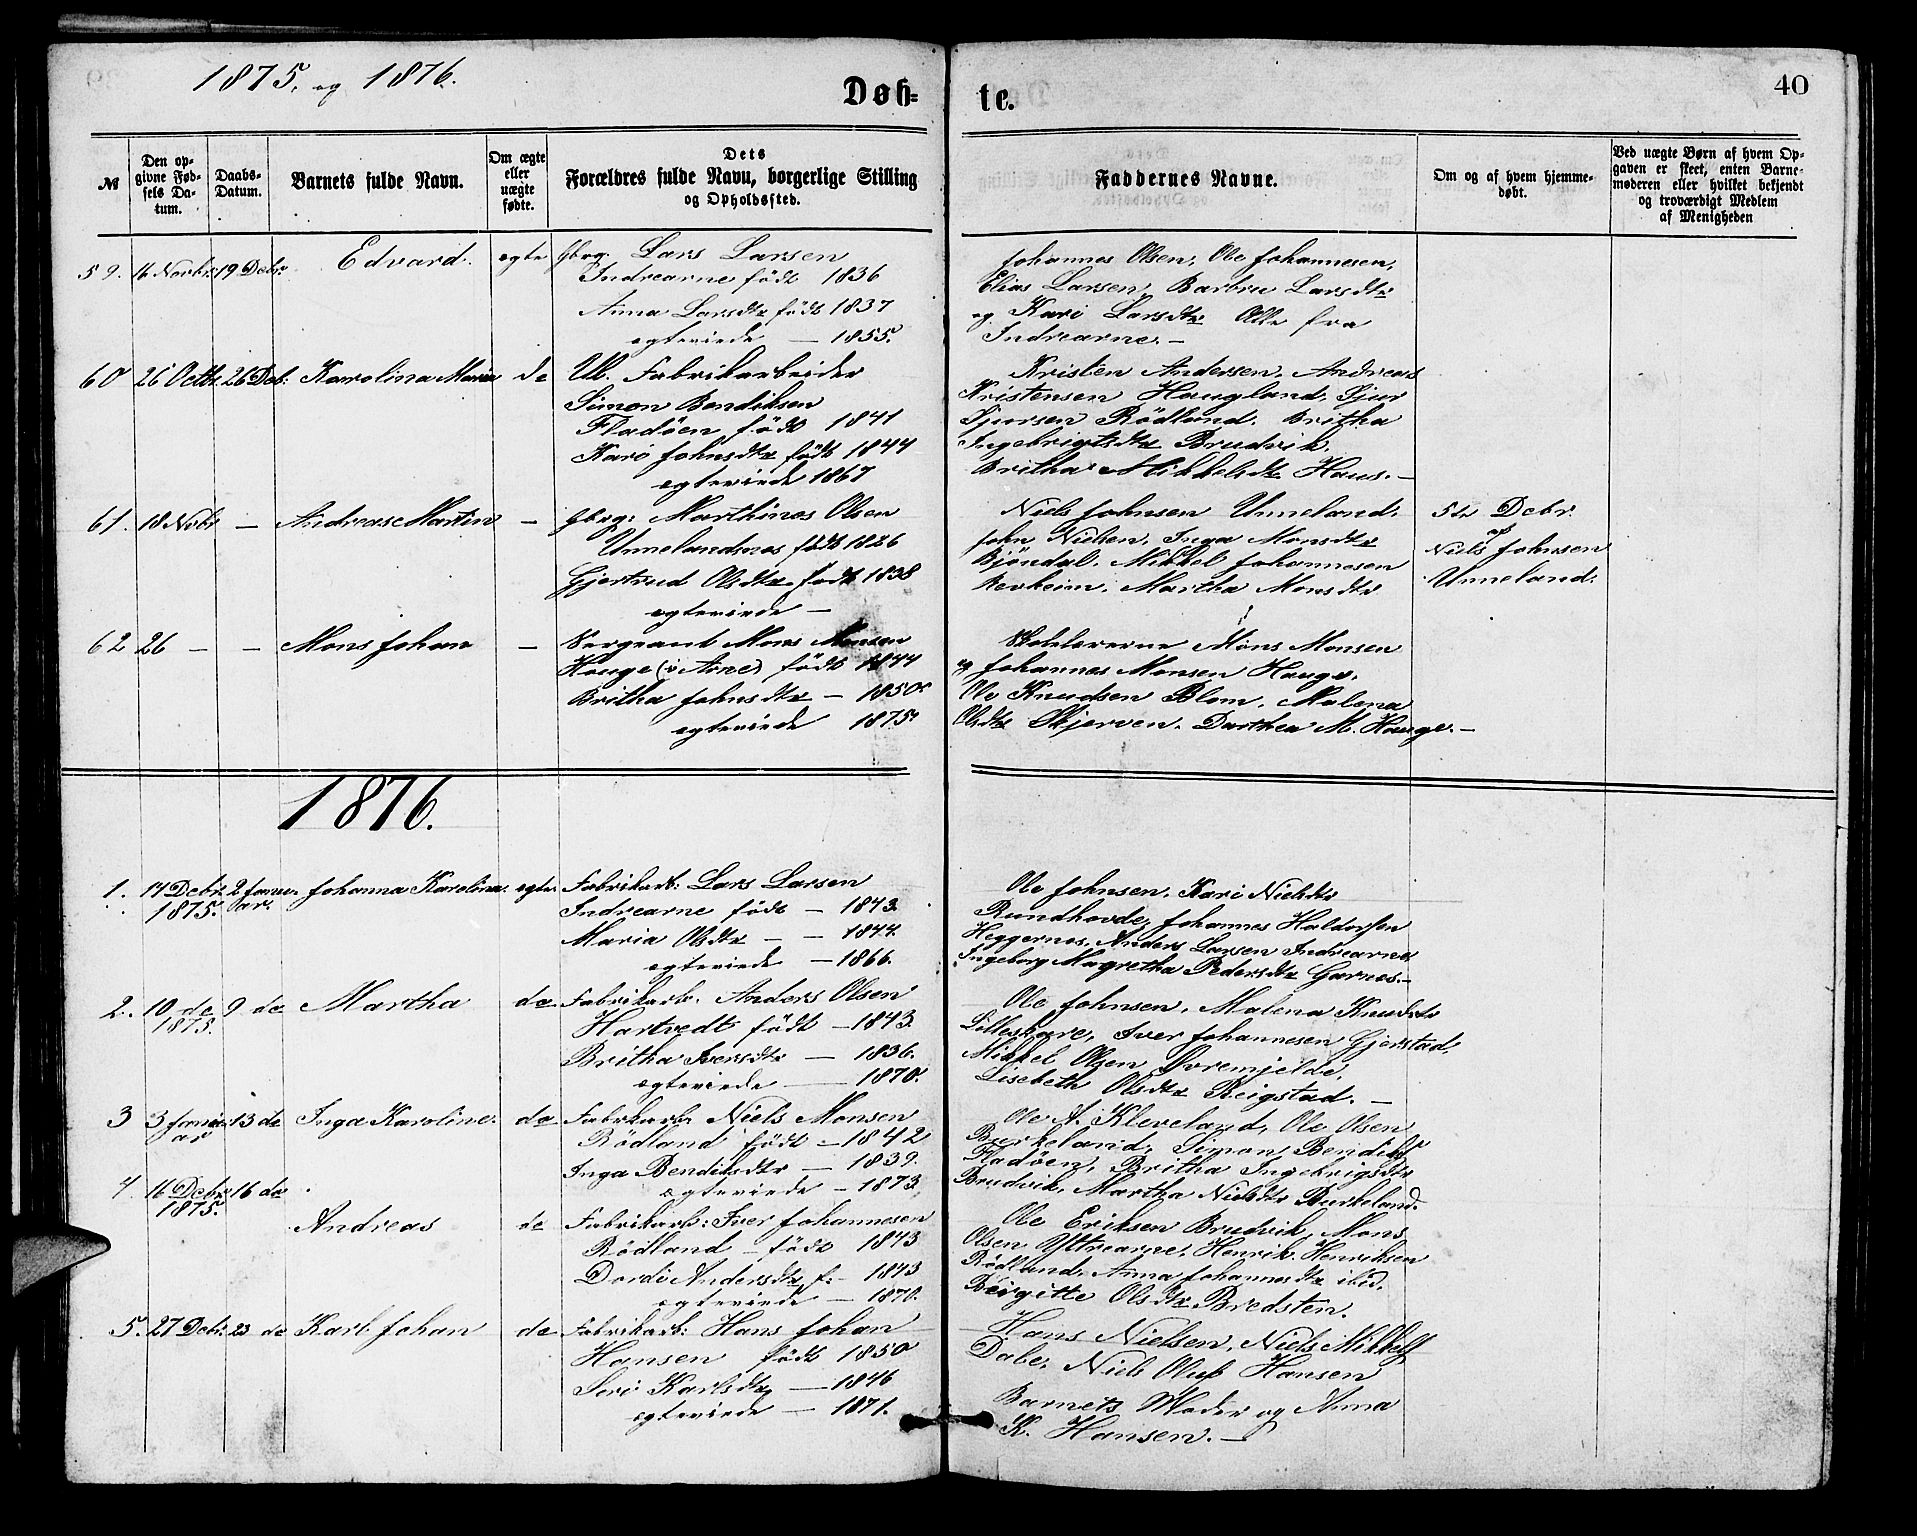 1875. og 1876.
Døb=
te.
40
№
Den op-
givne Fød-
sels Da-
tum.
Daabs-
Datum.
Barnets fulde Navn.
Om ægte
eller
uægte
fødte.
Dets
Forældres fulde Navn, borgerlige Stilling
og Opholdssted.
Faddernes Navne.
Om og af hvem hjemme-
døbt.
Ved uægte Børn af hvem Op-
gaven er skeet, enten Barne-
moderen eller hvilket bekjendt
og troværdigt Medlem
af Menigheden
59. 16 Novbr. 19 Debr. Edvard. egte
Gbrg. Lars Larsen
Indrearne födt 1836
Anna Larsdtr födt 1837
egteviede — 1855.
Johannes Olsen, Ole Johannesen,
Elias Larsen, Barbru Larsdtr
og Kari Larsdtr Alle fra
Indrearne. —
60 26 Octbr. 26 Deb: Karolina Maria do
Ul. Fabrikarbeider
Simon Bendiksen
Fladöen födt 1841
Kari Johnsdtr födt 1844
egteviede 1867
Kristen Andersen, Andreas
Kristensen Haugland, Sjur
Sjursen Rödland. Britha
Ingebrigtsdtr Brudvik.
Britha Mikkelsdtr Haus. —
61. 18 Novbr — Andreas Martin —
Gbrg: Marthines Olsen
Unnelandsnes födt 1826
Gjertrud Olsdtr. födt 1838
egteviede —
Niels Johnsen Unneland.
John Nielsen, Inga Monsdtr
Bjöndal. Mikkel Johannesen
Revheim. Martha Monsdtr
5te Debr.
af
Niels Johnsen
Unneland.
62 26 — — Mons Johan —
Sergeant Mons Monsen
Hauge (i Arne) födt 1844
Britha Johnsdtr — 1850
egteviede 1875.
Mons Monsen
og Johannes Monsen Hauge.
Ole Knudsen Blom. Malena
Olsdtr Skjerven. Darthea M. Hauge. —
1876.
1. 17 Debr. 2 Janu- Johanna Karolina. egte.
1875. ar.
Fabrikarb: Lars Larsen
Indrearne födt — 1843.
Maria Olsdtr — — 1844.
egteviede — 1866.
Ole Johnsen. Kari Nielsdtr
Rundhovde, Johannes Haldorsen
Heggernes. Anders Larsen Indrearne
Ingeborg Magretha Pedersdtr Garnes. —
2. 10 de 9 de Martha do
1875.
Fabrikarb. Anders Olsen
Hartvedt födt — 1843.
Britha Iversdtr — 1836.
egteviede — 1870.
Ole Johnsen, Malena Knudsdtr
Lilleskare, Iver Johannesen Gjerstad,
Mikkel Olsen Øvremjelde,
Lisebeth Olsdtr Reigstad. —
3 3 Janu- 13 de Inga Karoline. do
ar
Fabrikarb. Niels Monsen
Rödland födt — 1842
Inga Bendiksdtr — 1839.
egteviede — 1873.
Ole A. Kleveland, Ole Olsen
Burkeland, Simon Bendiks
Fladöen, Britha Ingebrigsdtr
Brudvik, Martha Nielsdtr Burkeland.
4. 16 Debr. 16 de
1875.
Andreas do
Fabrikarb: Iver Johannesen
Rödland — födt 1843
Dordi Andersdtr f. — 1843
egteviede — 1870.
Ole Eriksen Brudvik, Mons
Olsen Ytrearne, Henrik Henriksen
Rödland. Anna Johannesdtr ibid.
Birgitte Olsdtr Bredsten.
5. 27 Debr. 23 de Karl Johan do
Fabrikarb: Hans Johan
Hansen födt 1850
Seri Karlsdtr — 1846
egteviede — 1871.
Hans Nielsen, Niels Mikkels
Dale, Niels Oluf Hansen
Barnets Moder og Anna
K. Hansen. —